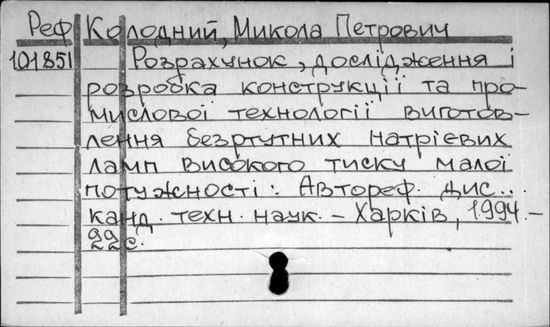 Реф Колодний, Микола Петрович
101851 Розрахунок, дослідження і
розробка конструкції та про-
мислової технології виготов-
лення безртутних натрієвих
ламп високого тиску малої
потужності: Автореф. дис...
канд. техн. наук. – Харків, 1994.–
22с.